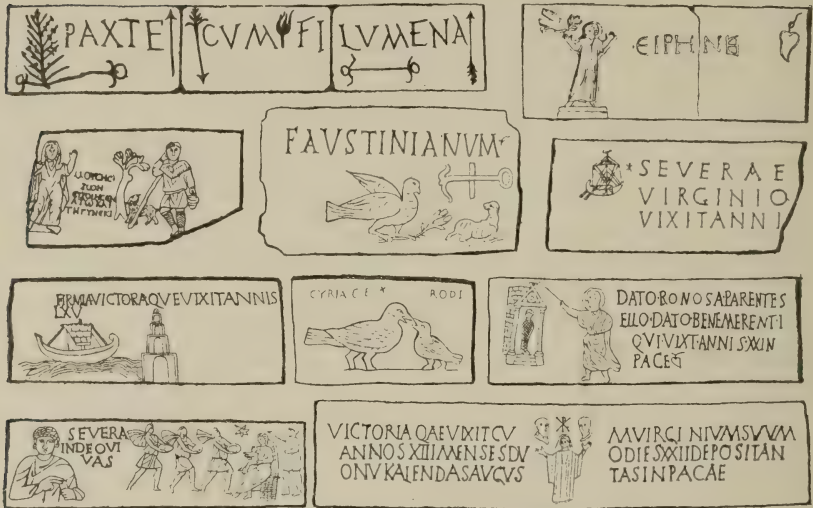 PAXTE CVM FI LVMENA
ΕΙΡΗΝΗ
FAVSTINIANVM
SEVERAE
VIRGINIO
VIXITANNI
FIRMIAVICTORAQVEVIXITANNIS
LXV
CYRIACE * RODI
DATO·BONOSAPARENTES
ELLO·DATOBENEMERENT·I
QVIVIXT·ANNISXXIN
PACE
SEVERA
INDEOVI
VAS
VICTORIA QAEVIXITCV MVIRGINIVMSVVM
ANNOS XIIIMENSESDV ODIESXXIIDEPOSITAN
ONVKALENDASAVGVS TASINPACAE